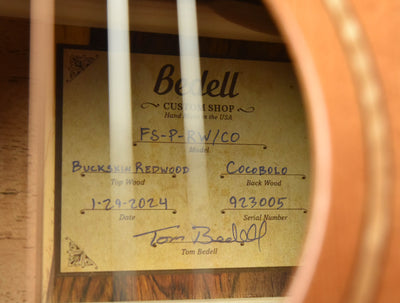 Bedell
CUSTOM SHOP
Hand Made in the USA
FS-P-RW/CO
Model
BUCKSKIN REDWOOD COCOBOLO
Top Wood Back Wood
1-29-2024 923005
Date Serial Number
Tom Bedell
Tom Bedell